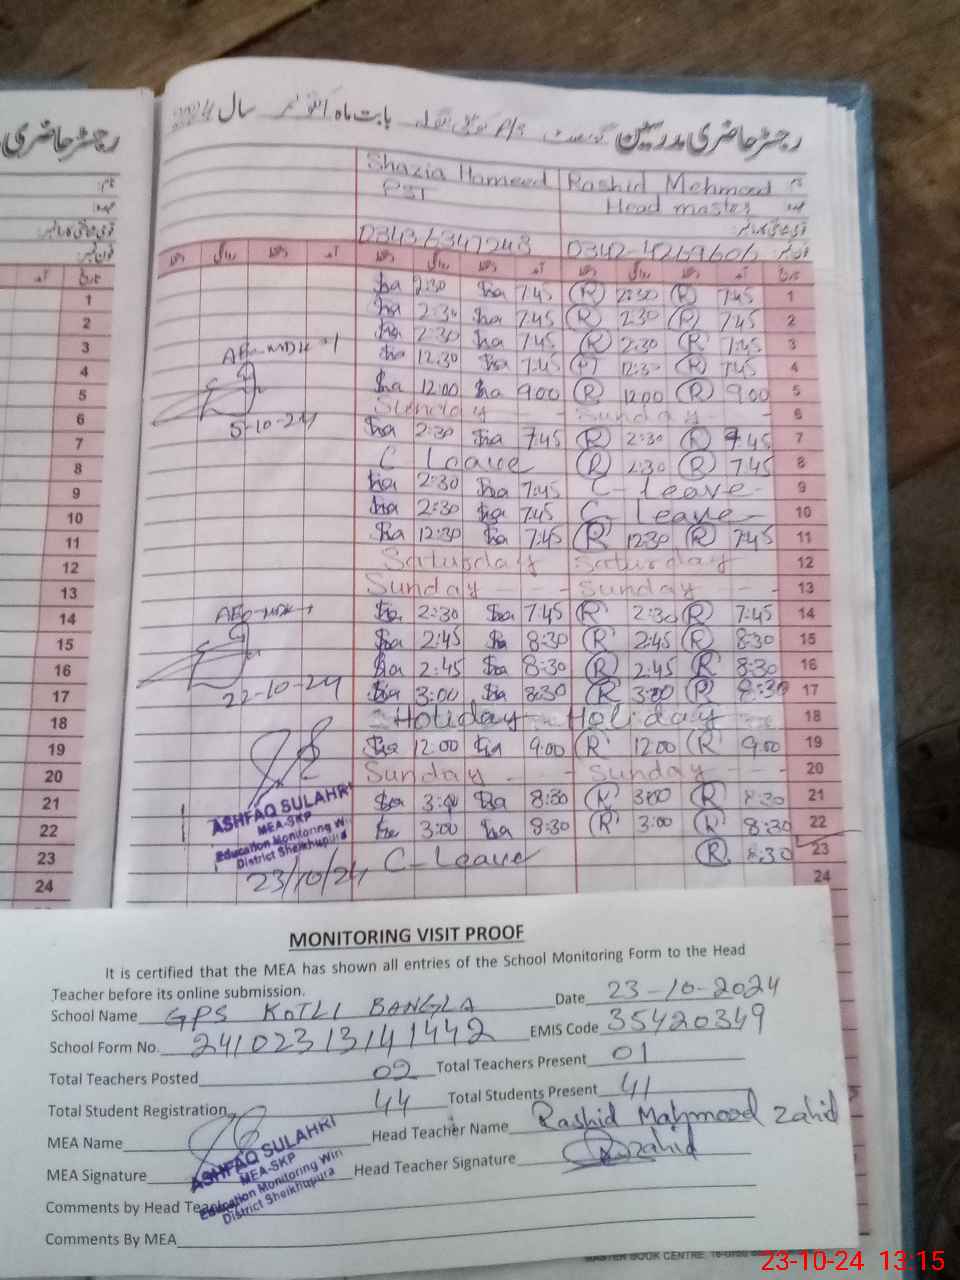 رجسٹر حاضری مدرسین گورنمنٹ P/S کوٹلی بنگلہ بابت ماہ اکتوبر سال 2024
رجسٹر حاضری
Shazia Hameed Rashid Mehmood
PST Head master
03436347248 0342-4269606
تاریخ آمد دستخط روانگی دستخط آمد دستخط روانگی دستخط
Sha 2:30 Sha 7:45 R 2:30 R 7:45 1
Sha 2:30 Sha 7:45 R 2:30 R 7:45 2
Sha 2:30 Sha 7:45 R 2:30 R 7:45 3
Sha 12:30 Sha 7:45 R 12:30 R 7:45 4
Sha 12:00 Sha 9:00 R 12:00 R 9:00 5
5-10-24
Sunday - - Sunday - - 6
Sha 2:30 Sha 7:45 R 2:30 R 7:45 7
C Leave R 2:30 R 7:45 8
Sha 2:30 Sha 7:45 C-Leave- 9
Sha 2:30 Sha 7:45 C-Leave- 10
Sha 12:30 Sha 7:45 R 12:30 R 7:45 11
Saturday - Saturday 12
Sunday - - - Sunday - - - 13
Sha 2:30 Sha 7:45 R 2:30 R 7:45 14
Sha 2:45 Sha 8:30 R 2:45 R 8:30 15
Sha 2:45 Sha 8:30 R 2:45 R 8:30 16
22-10-24
Sha 3:00 Sha 8:30 R 3:00 R 8:30 17
Holiday - Holiday 18
Sha 12:00 Sha 9:00 R 12:00 R 9:00 19
Sunday - - Sunday - - - 20
Sha 3:00 Sha 8:30 R 3:00 R 8:30 21
Sha 3:00 Sha 8:30 R 3:00 R 8:30 22
C-Leave R 8:30 23
24
ASHFAQ SULAHRI
MEA-SKP
Education Monitoring Win
District Sheikhupura
23/10/24
1
2
3
4
5
6
7
8
9
10
11
12
13
14
15
16
17
18
19
20
21
22
23
24
MONITORING VISIT PROOF
It is certified that the MEA has shown all entries of the School Monitoring Form to the Head
Teacher before its online submission.
School Name GPS KOTLI BANGLA Date 23-10-2024
School Form No. 24102313141442 EMIS Code 35420349
Total Teachers Posted 02 Total Teachers Present 01
Total Student Registration 44 Total Students Present 41
MEA Name Head Teacher Name Rashid Mahmood Zahid
MEA Signature Head Teacher Signature Zahid
ASHFAQ SULAHRI
MEA-SKP
Education Monitoring Win
District Sheikhupura
Comments by Head Teacher
Comments By MEA
MASTER BOOK CENTRE
23-10-24 13:15